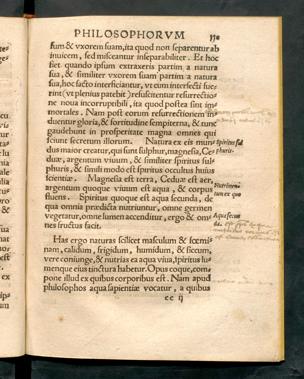 PHILOSOPHORVM
sum & vxorem suam, ita quod non separentur ab
inuicem, sed misceantur inseparabiliter. Et hoc
fiet quando ipsum extraxeris partim a natura
sua, & similiter vxorem suam partim a natura
sua, hoc facto interficiantur, vt cum interfecti fue-
rint (vt plenius patebit) resuscitentur resurrectio-
ne noua incorruptibili, ita quod postea sint im-
mortales. Nam post eorum resurrectionem in-
duentur gloria, & fortitudine sempiterna, & tunc
gaudebunt in prosperitate magna omnes qui
sciunt secretum illorum. Natura ex eis mun-
dus maior creatur, qui sunt sulphur, magnesia, Ce-
duæ, argentum viuum, & similiter spiritus sul-
phuris, & simili modo est spiritus occultus huius
scientiæ. Magnesia est terra, Ceduæ est aer,
argentum quoque viuum est aqua, & corpus
fluens. Spiritus quoque est aqua secunda, de
qua omnia prædicta nutriuntur, omne germen
vegetatur, omne lumen accenditur, ergo & om-
nes fructus facit.
Spiritus sul
phuris.
Nutrimen
tum ex quo
Aqua secun
da.
Has ergo naturas scilicet masculum & fœmi-
nam, calidum, frigidum, humidum, & siccum,
vere coniunge, & nutrias ea aqua viua, spiritus lu-
menque eius tinctura habetur. Opus coque, com-
pone illud ex quibus corporibus est. Nam apud
philosophos aqua sapientiæ vocatur, a quibus
ee ij